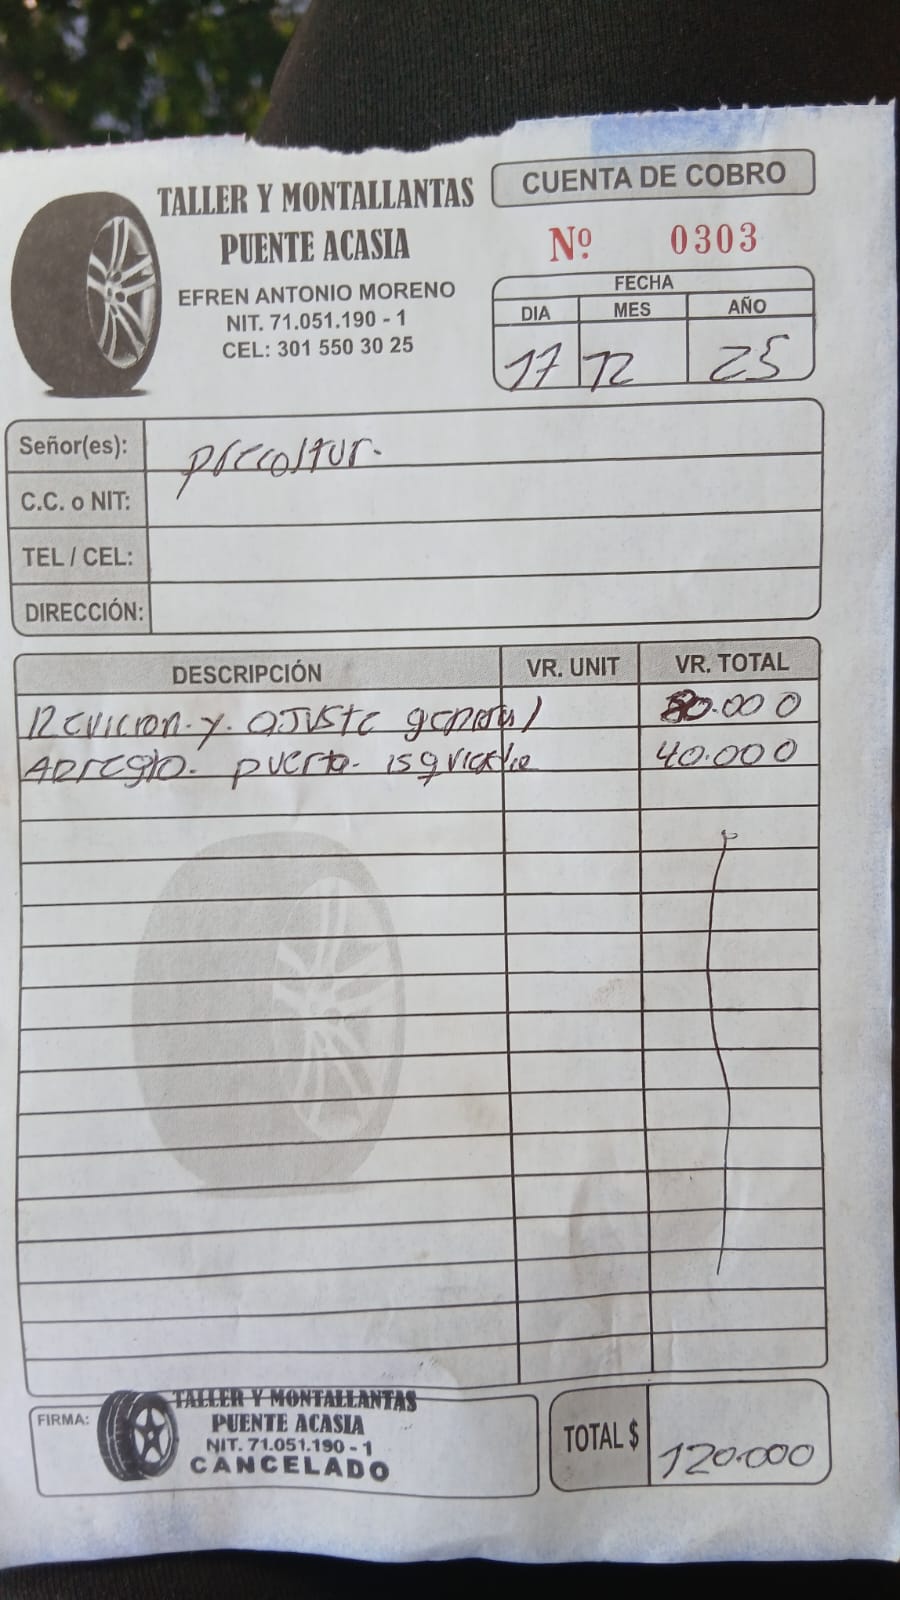 TALLER Y MONTALLANTAS
PUENTE ACASIA
EFREN ANTONIO MORENO
NIT. 71.051.190 - 1
CEL: 301 550 30 25
CUENTA DE COBRO
Nº 0303
FECHA
DIA MES AÑO
17 12 25
Señor(es): precoltur.
C.C. o NIT:
TEL / CEL:
DIRECCIÓN:
DESCRIPCIÓN VR. UNIT VR. TOTAL
Revicion. y. ajuste general 80.000
Arreglo. puerta. 40.000
FIRMA:
TALLER Y MONTALLANTAS
PUENTE ACASIA
NIT. 71.051.190 - 1
CANCELADO
TOTAL $ 120.000